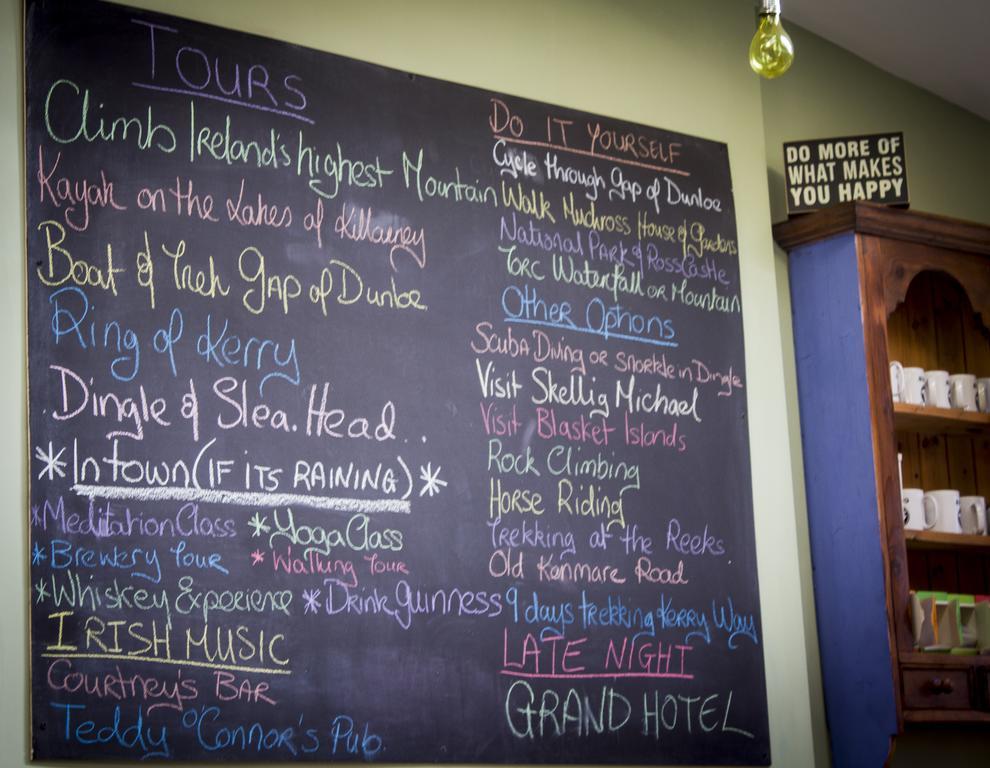 TOURS
Climb Ireland's highest Mountain
Kayak on the Lakes of Killarney
Boat & Trek Gap of Dunloe
Ring of Kerry
Dingle & Slea.Head..
*In town (IF ITS RAINING)*
*Meditation Class *Yoga Class
*Brewery Tour *Walking Tour
*Whiskey Experience *Drink Guinness
IRISH MUSIC
Courtney's BAR
Teddy O'Connor's Pub
DO IT YOURSELF
Cycle through Gap of Dunloe
Walk Muckross House & Gardens
National Park & Ross Castle
Torc Waterfall or Mountain
Other Options
Scuba Diving or snorkle in Dingle
Visit Skellig Michael
Visit Blasket Islands
Rock Climbing
Horse Riding
Trekking at the Reeks
Old Kenmare Road
9 days trekking Kerry Way
LATE NIGHT
GRAND HOTEL
DO MORE OF
WHAT MAKES
YOU HAPPY